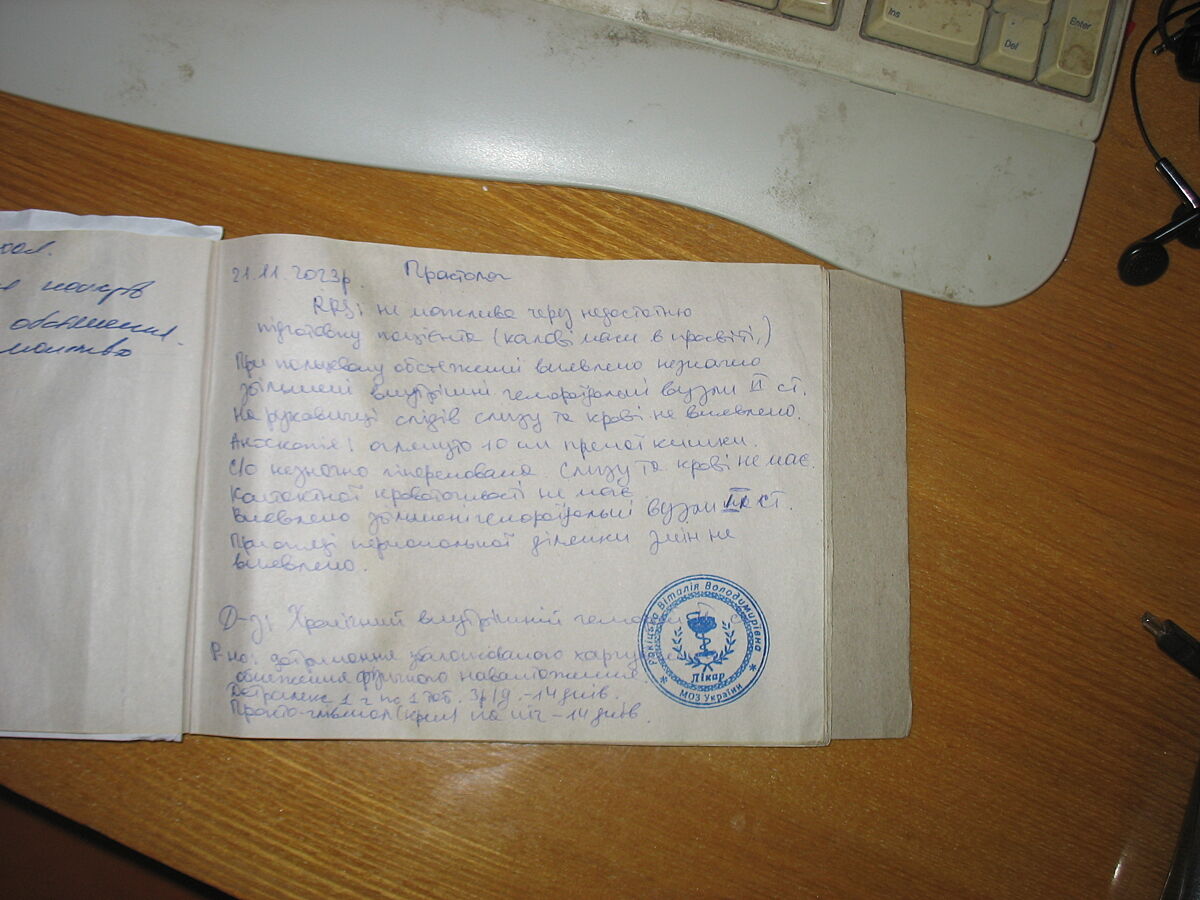 Ins
Del
Enter
21.11.2023р. Проктолог
RRS: не можлива через недостатню
підготовку пацієнта (калові маси в просвіті.)
При пальцевому обстеженні виявлено незначно
збільшені внутрішні гемороїдальні вузли II ст.
На рукавичці слідів слизу та крові не виявлено.
Аноскопія: оглянуто 10 см прямої кишки.
С/о незначно гіперемована. Слизу та крові не має.
Контактної кровоточивості не має
Виявлено збільшені гемороїдальні вузли II ст.
При огляді періанальної ділянки змін не
виявлено.
Д-з: Хронічний внутрішній
Р-но: дотримання збалансованого
обмеження фізичного навантаження
Детралекс 1 г по 1 таб. 3р/д. - 14 днів.
Прокто-глівенол (крем) на ніч - 14 днів.
Ракіцька Віталія Володимирівна
Лікар
МОЗ України
обстеження.